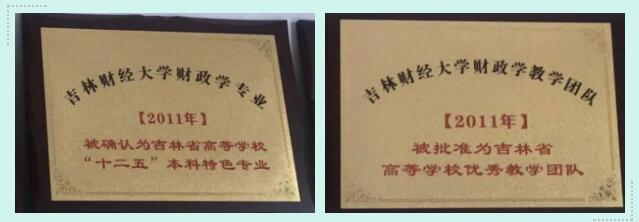 吉林财经大学财政学专业
【2011年】
被确认为吉林省高等学校
“十二五”本科特色专业
吉林财经大学财政学教学团队
【2011年】
被批准为吉林省
高等学校优秀教学团队